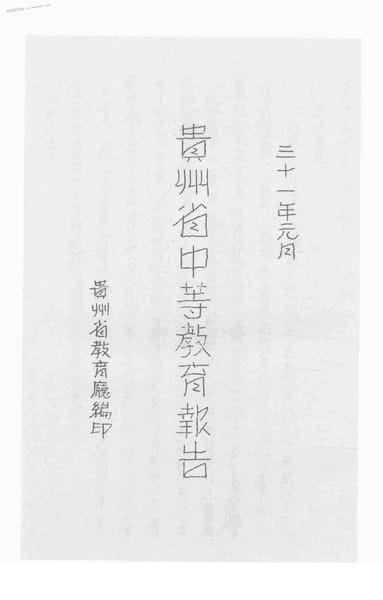 三十一年元月
貴州省中等教育報告
貴州省教育廳編印